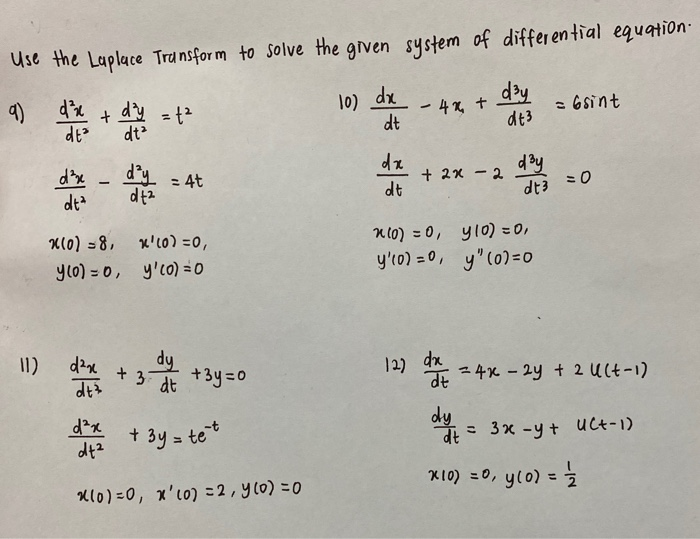 Use the Laplace Transform to solve the given system of differential equation.
9) d²x/dt² + d²y/dt² = t²
d²x/dt² - d²y/dt² = 4t
x(0) = 8, x'(0) = 0,
y(0) = 0, y'(0) = 0
10) dx/dt - 4x + d³y/dt³ = 6sint
dx/dt + 2x - 2 d³y/dt³ = 0
x(0) = 0, y(0) = 0,
y'(0) = 0, y"(0) = 0
11) d²x/dt² + 3 dy/dt + 3y = 0
d²x/dt² + 3y = te⁻ᵗ
x(0) = 0, x'(0) = 2, y(0) = 0
12) dx/dt = 4x - 2y + 2 U(t-1)
dy/dt = 3x - y + U(t-1)
x(0) = 0, y(0) = 1/2